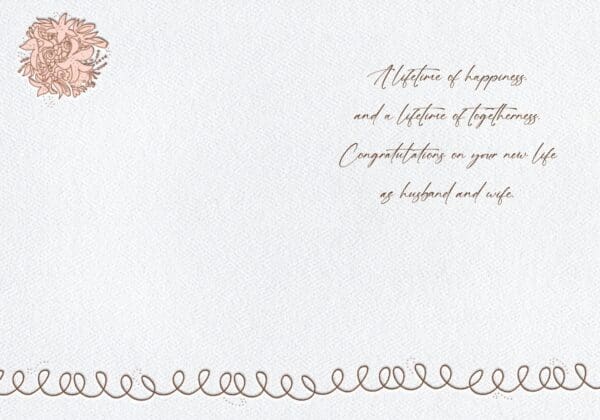 A lifetime of happiness.
and a lifetime of togetherness.
Congratulations on your new life
as husband and wife.